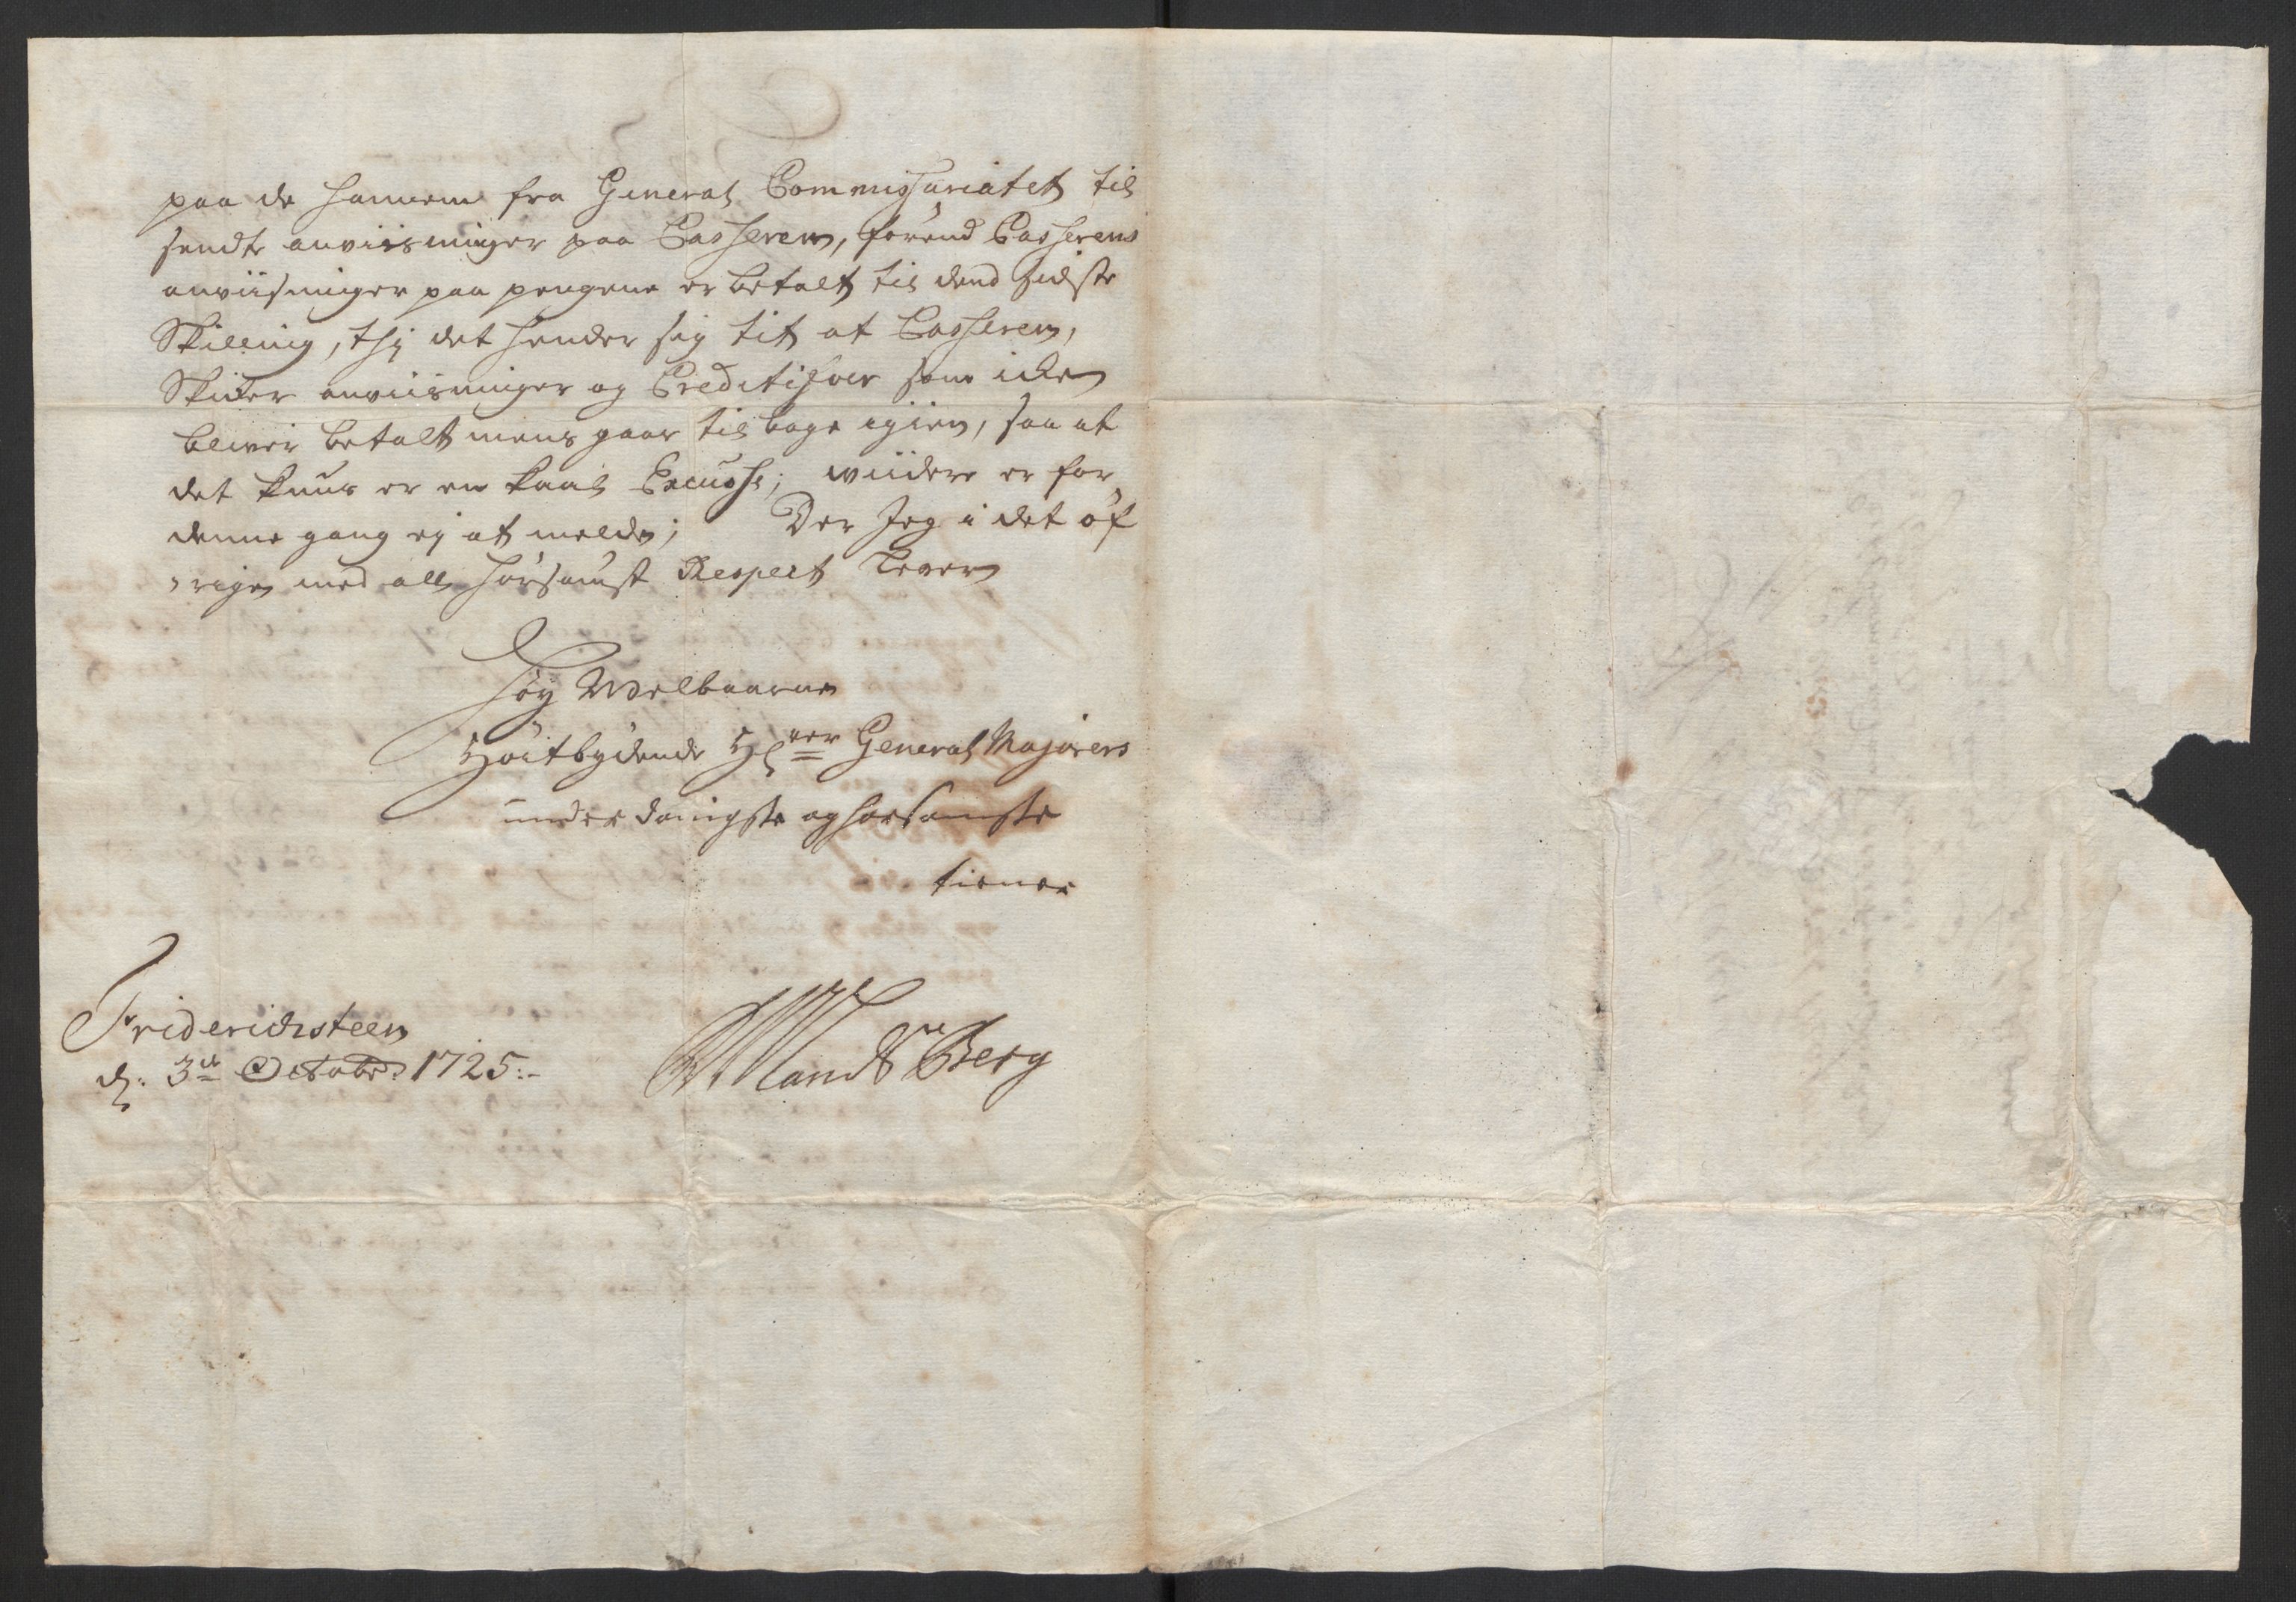 paa de hannem fra General Commissariatet til
sendte anviisninger paa Casseren, førend Casserens
anviisninger paa pengene er betalt til dend sidste
Skilling, thj det hender sig tit at Casseren,
Skicker anviisninger og Creditiver som icke
bliver betalt mens gaar tilbage igien, saa at
det kuns er en kaal Excusse; wiidere er for
denne gang ej at melde; Der Jeg i det øf
rige med all hørsamst Respect lever
Høy Welbaarne
Høitbydende Hr General Majorers
underdanigste og horsamste
tiener
Friderichsteen
d: 3de Octobr: 1725:-
Mandt Berg